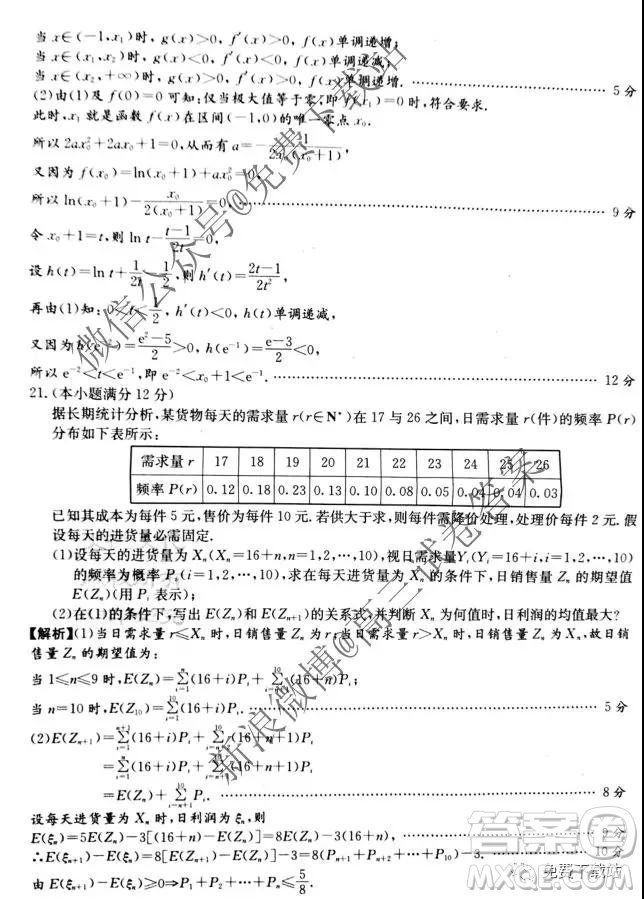 当 x∈(-1,x₁)时, g(x)>0, f′(x)>0, f(x)单调递增;
当 x∈(x₁,x₂)时, g(x)<0, f′(x)<0, f(x)单调递减;
当 x∈(x₂,+∞)时, g(x)>0, f′(x)>0, f(x)单调递增. 5 分
(2)由(1)及 f(0)=0 可知:仅当极大值等于零,即 f(x₁)=0 时,符合要求.
此时, x₁ 就是函数 f(x)在区间(-1,0)的唯一零点 x₀.
所以 2ax₀²+2ax₀+1=0,从而有 a=-1/(2x₀(x₀+1)),
又因为 f(x₀)=ln(x₀+1)+ax₀²=0,
所以 ln(x₀+1)-x₀/(2(x₀+1))=0, 9 分
令 x₀+1=t,则 ln t-(t-1)/(2t)=0,
设 h(t)=ln t+1/(2t)-1/2,则 h′(t)=(2t-1)/(2t²),
再由(1)知:0<t<1/2, h′(t)<0, h(t)单调递减,
又因为 h(e⁻²)=(e²-5)/2>0, h(e⁻¹)=(e-3)/2<0,
所以 e⁻²<t<e⁻¹,即 e⁻²<x₀+1<e⁻¹. 12 分
21.(本小题满分 12 分)
据长期统计分析,某货物每天的需求量 r(r∈N*)在 17 与 26 之间,日需求量 r(件)的频率 P(r)
分布如下表所示:
需求量 r 17 18 19 20 21 22 23 24 25 26
频率 P(r) 0.12 0.18 0.23 0.13 0.10 0.08 0.05 0.04 0.04 0.03
已知其成本为每件 5 元,售价为每件 10 元.若供大于求,则每件需降价处理,处理价每件 2 元.假
设每天的进货量必需固定.
(1)设每天的进货量为 Xₙ(Xₙ=16+n,n=1,2,⋯,10),视日需求量Yᵢ(Yᵢ=16+i,i=1,2,⋯,10)
的频率为概率 Pᵢ(i=1,2,⋯,10),求在每天进货量为 Xₙ 的条件下,日销售量 Zₙ 的期望值
E(Zₙ)(用 Pᵢ 表示);
(2)在(1)的条件下,写出 E(Zₙ)和 E(Zₙ₊₁)的关系式,并判断 Xₙ 为何值时,日利润的均值最大?
【解析】(1)当日需求量 r≤Xₙ 时,日销售量 Zₙ 为 r;当日需求量 r>Xₙ 时,日销售量 Zₙ 为 Xₙ,故日销
售量 Zₙ 的期望值为:
当 1≤n≤9 时,E(Zₙ)=∑ⁿᵢ₌₁(16+i)Pᵢ+∑¹⁰ᵢ₌ₙ₊₁(16+n)Pᵢ;
当 n=10 时,E(Z₁₀)=∑¹⁰ᵢ₌₁(16+i)Pᵢ. 5 分
(2)E(Zₙ₊₁)=∑ⁿ⁺¹ᵢ₌₁(16+i)Pᵢ+∑¹⁰ᵢ₌ₙ₊₂(16+n+1)Pᵢ
=∑ⁿᵢ₌₁(16+i)Pᵢ+∑¹⁰ᵢ₌ₙ₊₁(16+n+1)Pᵢ
=E(Zₙ)+∑¹⁰ᵢ₌ₙ₊₁Pᵢ. 8 分
设每天进货量为 Xₙ 时,日利润为 ξₙ,则
E(ξₙ)=5E(Zₙ)-3[(16+n)-E(Zₙ)]=8E(Zₙ)-3(16+n), 9 分
∴E(ξₙ₊₁)-E(ξₙ)=8[E(Zₙ₊₁)-E(Zₙ)]-3=8(Pₙ₊₁+Pₙ₊₂+⋯+P₁₀)-3. 10 分
由 E(ξₙ₊₁)-E(ξₙ)≥0⇒P₁+P₂+⋯+Pₙ≤5/8.
微信公众号@免费下载站
新浪微博@高三试卷答案
答案圈
免费下载站